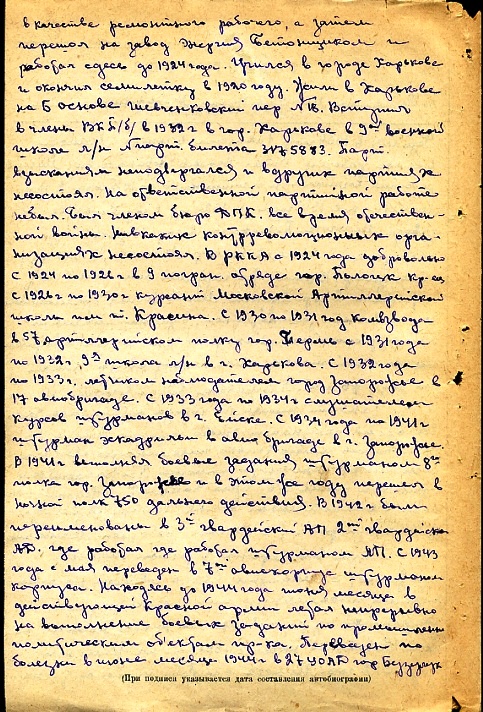 в качестве ремонтного рабочего, а затем
перешол на завод Энергия Бетонщиком и
работал сдесь до 1924 года. Учился в городе Харькове
и окончил семилетку в 1920 году. Жили в Харькове
на Б основе Шевченковский пер №18. Вступил
в члены ВКП/б/ в 1932 г в гор. Харькове в 9ой военной
школе л/н № парт. билета 3175883. Парт.
взысканиям неподвергался и вдругих партиях
несостоял. На ответственной партийной работе
небыл. Был членом бюро ВПК. все время отечествен-
ной войны. Нивкаких контрреволюционных орга-
низациях несостоял. В РККА с 1924 года добровольно
С 1924 по 1926 г в 9 погран. отряде гор. Полоцк кр-ец
С 1926 г по 1930 г курсант Московской Артиллерийской
школа им т. Красина. С 1930 по 1931 год Комвзвода
в 57 артиллерийском полку гор. Пермь с 1931 года
по 1932 г 9я школа л/н в г. Харькова. С 1932 года
по 1933 г. летчиком наблюдателем город Запорожье в
17 авиобригаде. С 1933 года по 1934 г слушателем
курсов штурманов в г. Ейске. С 1934 года по 1941 г
штурман эскадрильи в авио бригаде в г. Запорожье.
В 1941 г выполнял боевые задания штурманом 8го
полка гор. Запорожье и в этом же году перешел в
ночной полк 750 дальнего действия. В 1942 г были
переименованы в 3й гвардейский АП 2ой гвардейской
АД. где работал где работал штурманом АП. С 1943
года с мая переведен в 7ой авиокорпус штурманом
корпуса. Находясь до 1944 года июня месяца в
действующей Красной армии летал непрерывно
на выполнение боевых заданий по промышленно
политическим объектам пр-ка. Переведен по
болезни в июне месяце 1944 г в 27 УОАД гор Бузулук
(При подписи указывается дата составления автобиографии)